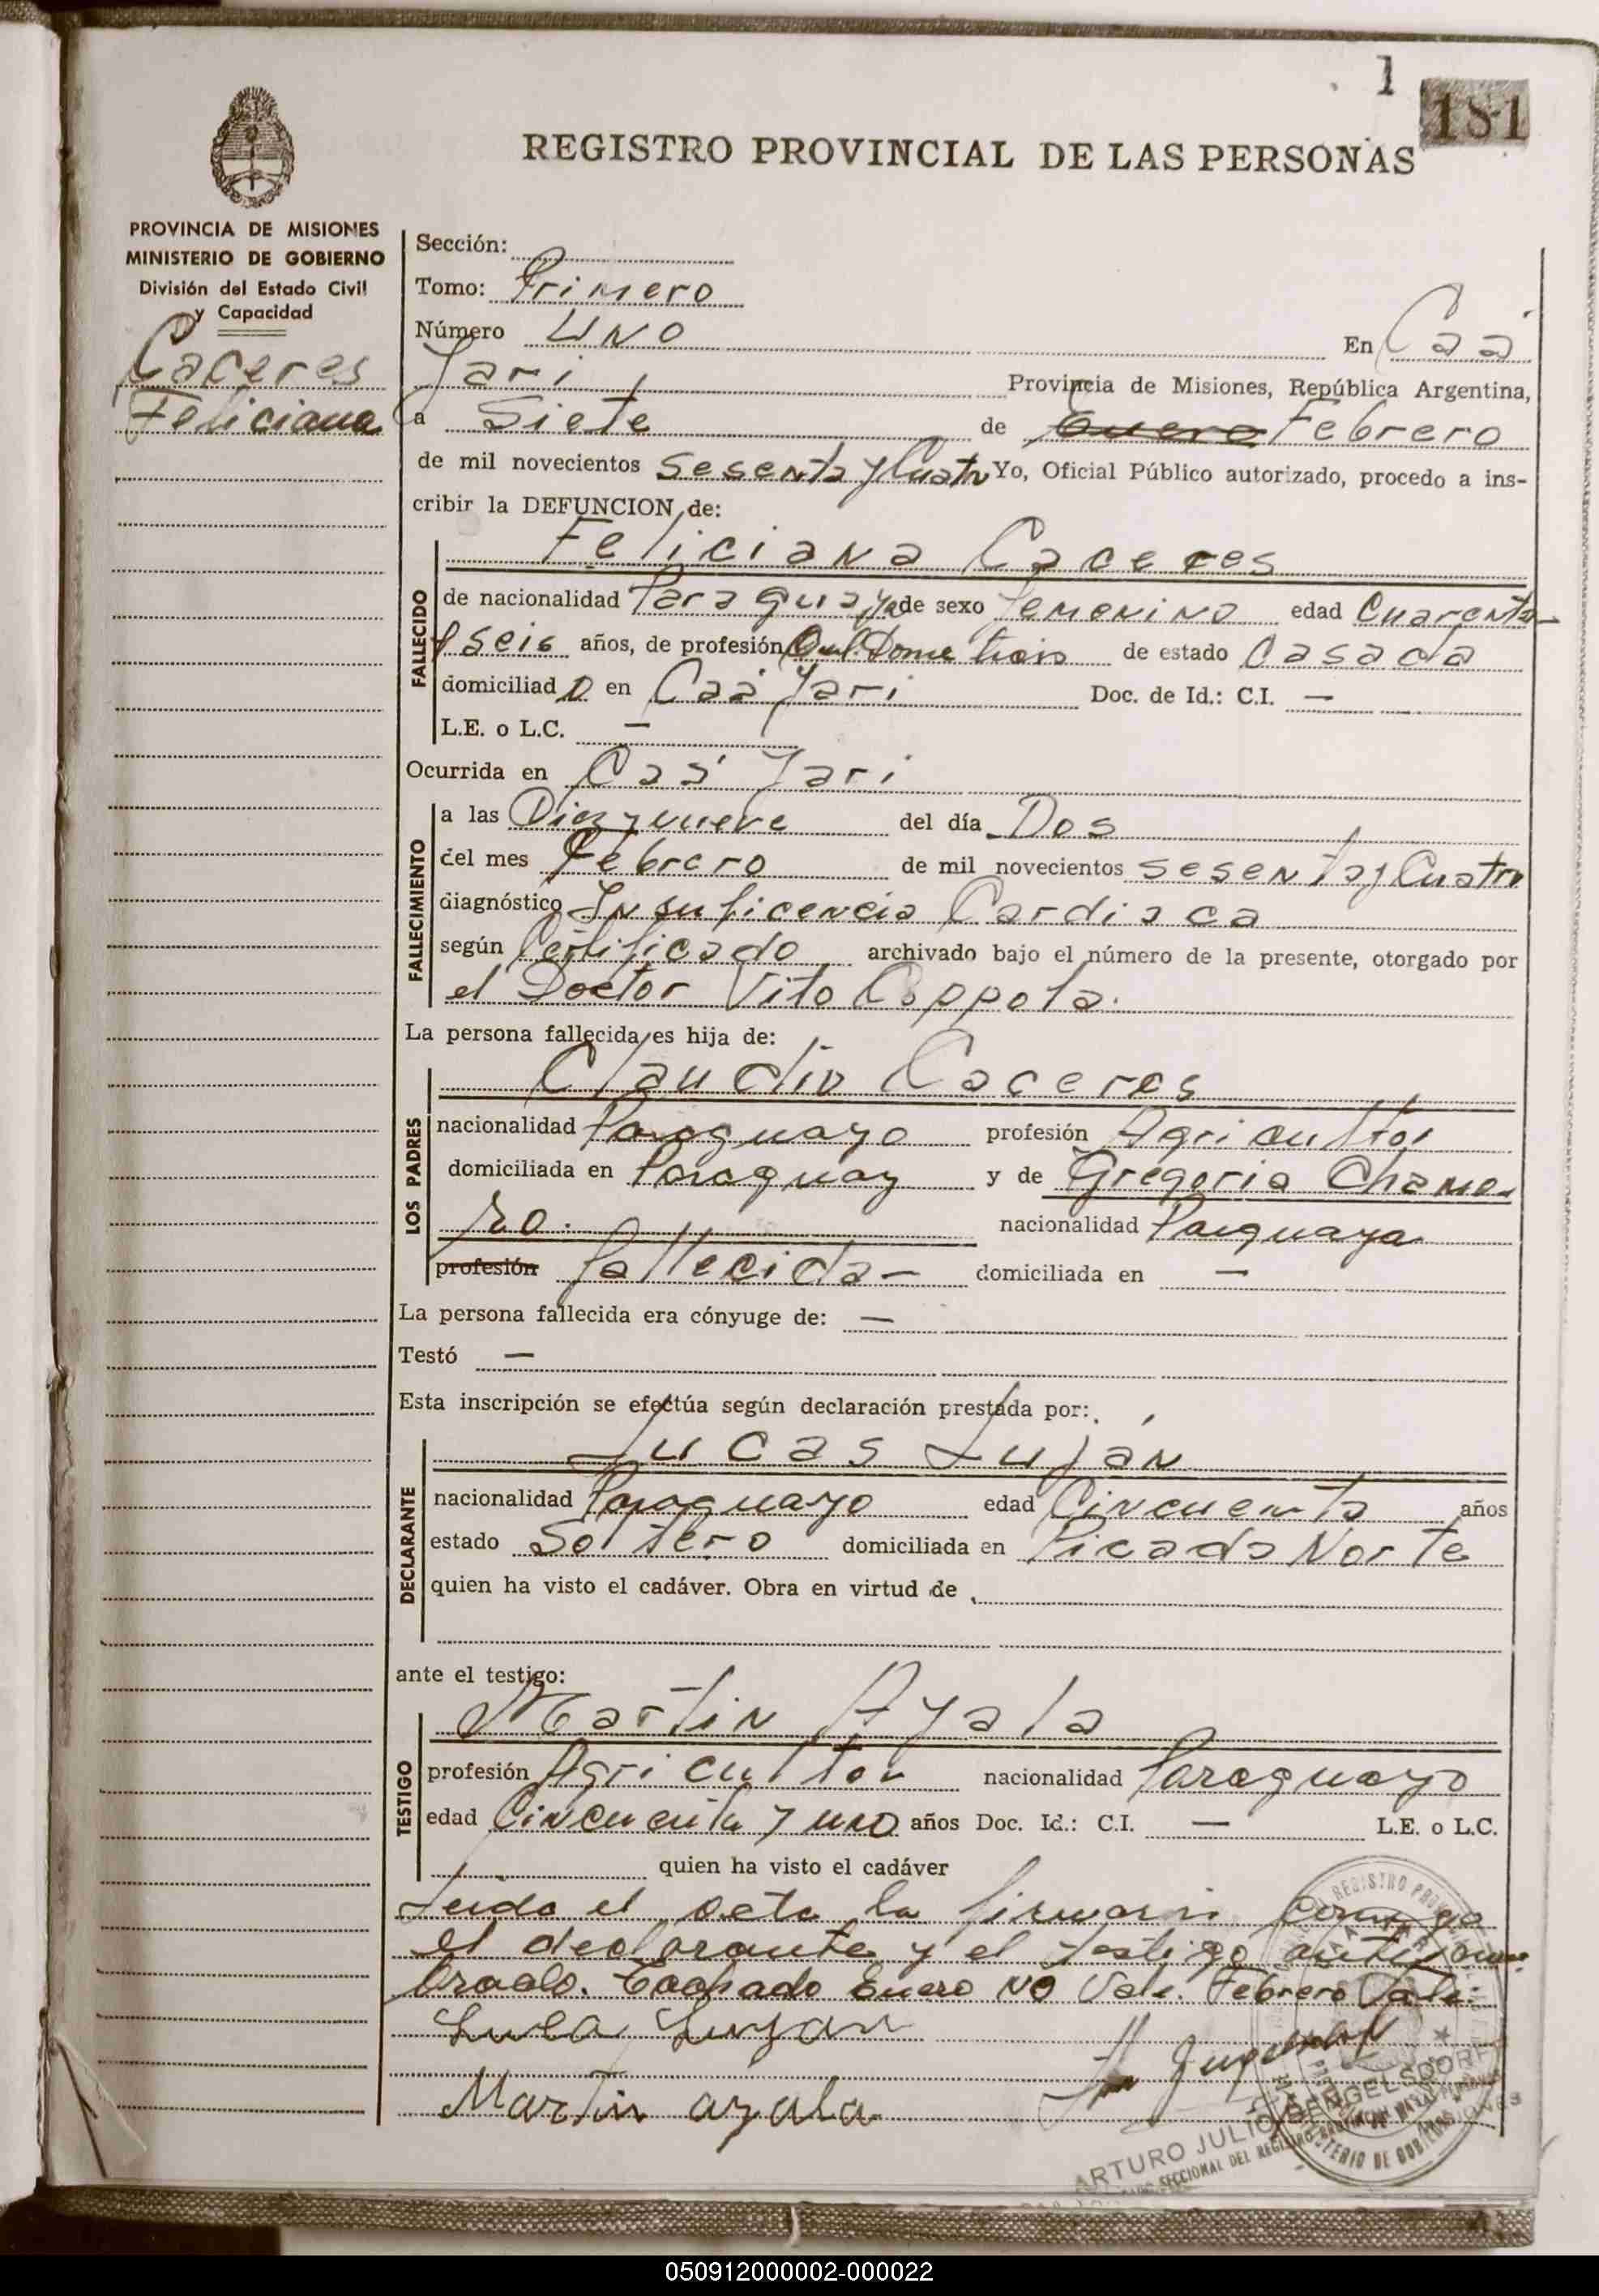 1
181
REGISTRO PROVINCIAL DE LAS PERSONAS
PROVINCIA DE MISIONES
MINISTERIO DE GOBIERNO
División del Estado Civil
y Capacidad
Caceres
Feliciana
Sección:
Tomo: Primero
Número UNO En Caá
Yari, Provincia de Misiones, República Argentina,
a Siete de Enero Febrero
de mil novecientos Sesenta y Cuatro Yo, Oficial Público autorizado, procedo a ins-
cribir la DEFUNCION de:
Feliciana Caceres
FALLECIDO
de nacionalidad Paraguaya de sexo femenino edad Cuarenta
y seis años, de profesión de estado Casada
domiciliad o en Caá Yari Doc. de Id.: C.I. —
L.E. o L.C. —
Ocurrida en Caá Yari
FALLECIMIENTO
a las Diez y nueve del día Dos
del mes Febrero de mil novecientos Sesenta y Cuatro
diagnóstico Insuficencia Cardiaca
según Certificado archivado bajo el número de la presente, otorgado por
el Doctor Vito Coppola.
La persona fallecida es hija de:
Claudio Caceres
LOS PADRES
nacionalidad Paraguayo profesión Agricultor
domiciliada en Paraguay y de Gregoria Chamo-
rro. nacionalidad Paraguaya
profesión fallecida — domiciliada en —
La persona fallecida era cónyuge de: —
Testó —
Esta inscripción se efectúa según declaración prestada por:
Lucas Luján
DECLARANTE
nacionalidad Paraguayo edad Cincuenta años
estado Soltero domiciliada en Picada Norte
quien ha visto el cadáver. Obra en virtud de
ante el testigo:
Martin Ayala
TESTIGO
profesión Agricultor nacionalidad Paraguayo
edad Cincuenta y uno años Doc. Id.: C.I. — L.E. o L.C.
quien ha visto el cadáver
Leida el acta la firman conmigo
el declarante y el testigo antes nom-
brado. Tachado Enero NO Vale. Febrero Vale.
Luca Luyan
Martin ayala
ARTURO JULIO BANGELSDORF
SECCIONAL DEL REGISTRO PROVINCIAL DE LAS PERSONAS
MINISTERIO DE GOBIERNO
050912000002-000022